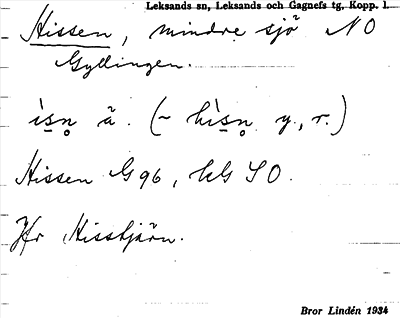 Leksands sn, Leksands och Gagnefs tg, Kopp. l.
Hissen, mindre sjö NO
Gyllingen.
ìsn̥ ã. (~ hìsn̥ y., r.)
Hissen G 96, hG SO.
Jfr Hisstjärn.
Bror Lindén 1934